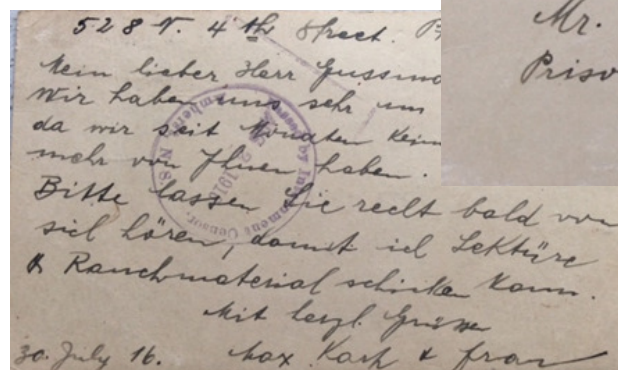 528 N. 4th Street.
Mein lieber Herr
Wir haben uns sehr um
da wir seit Monaten kein
mehr von Ihnen haben.
Bitte lassen Sie recht bald von
sich hören, damit ich Lektüre
& Rauchmaterial schicken kann.
Mit herzl. Grüssen
30. July 16. Max Koch & Frau
Mr.
Priso